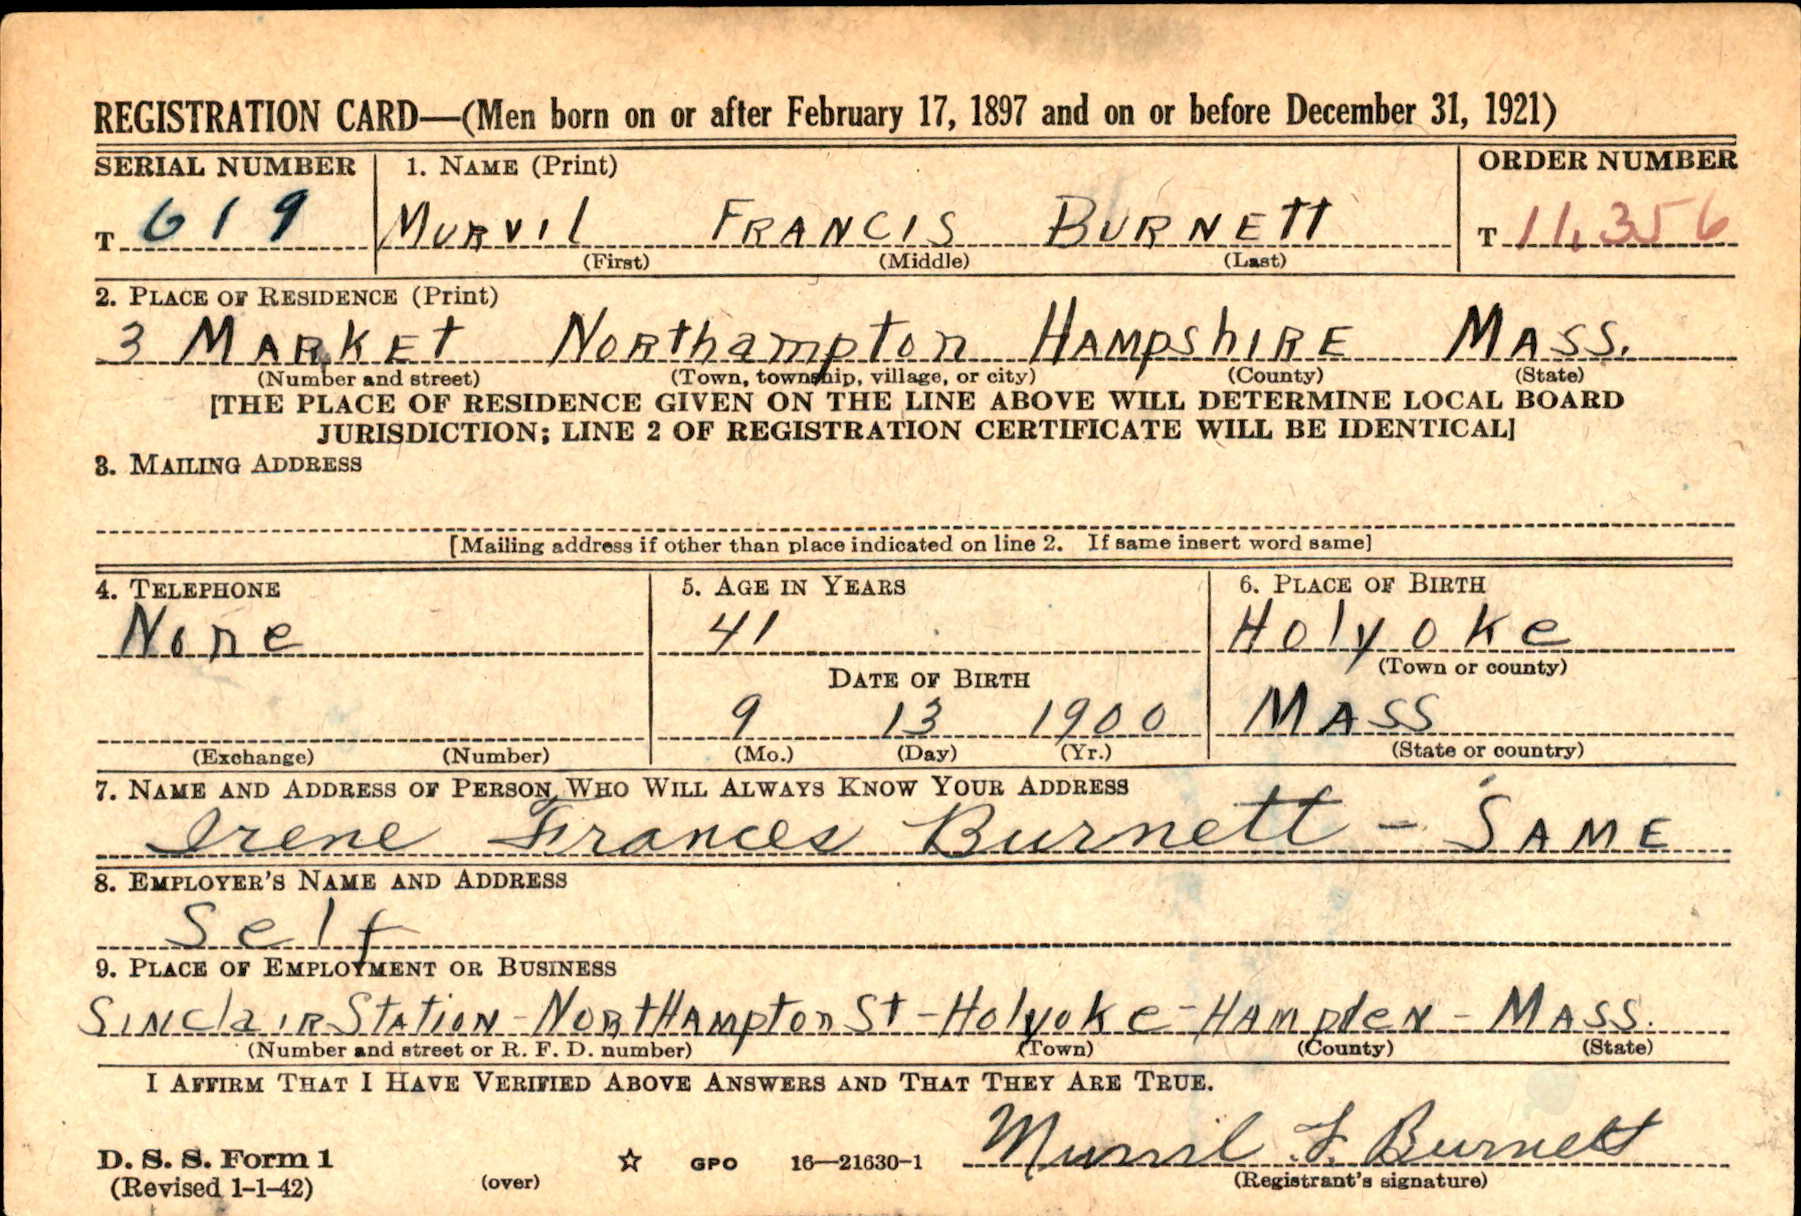 REGISTRATION CARD—(Men born on or after February 17, 1897 and on or before December 31, 1921)
SERIAL NUMBER 1. NAME (Print) ORDER NUMBER
T 619 MURVIL FRANCIS BURNETT T 11,356
(First) (Middle) (Last)
2. PLACE OF RESIDENCE (Print)
3 MARKET NORthampton HAMPShIRE MASS.
(Number and street) (Town, township, village, or city) (County) (State)
[THE PLACE OF RESIDENCE GIVEN ON THE LINE ABOVE WILL DETERMINE LOCAL BOARD
JURISDICTION; LINE 2 OF REGISTRATION CERTIFICATE WILL BE IDENTICAL]
3. MAILING ADDRESS
[Mailing address if other than place indicated on line 2. If same insert word same]
4. TELEPHONE 5. AGE IN YEARS 6. PLACE OF BIRTH
None 41 Holyoke
(Town or county)
DATE OF BIRTH
9 13 1900 MASS
(Exchange) (Number) (Mo.) (Day) (Yr.) (State or country)
7. NAME AND ADDRESS OF PERSON WHO WILL ALWAYS KNOW YOUR ADDRESS
Irene Frances Burnett - SAME
8. EMPLOYER'S NAME AND ADDRESS
Self
9. PLACE OF EMPLOYMENT OR BUSINESS
SINclaIR StAtiON - NORtHAmpton St - Holyoke - HAmpdeN - MASS.
(Number and street or R. F. D. number) (Town) (County) (State)
I AFFIRM THAT I HAVE VERIFIED ABOVE ANSWERS AND THAT THEY ARE TRUE.
Murvil F. Burnett
D. S. S. Form 1
(Revised 1-1-42) (over) ☆ GPO 16—21630-1 (Registrant's signature)